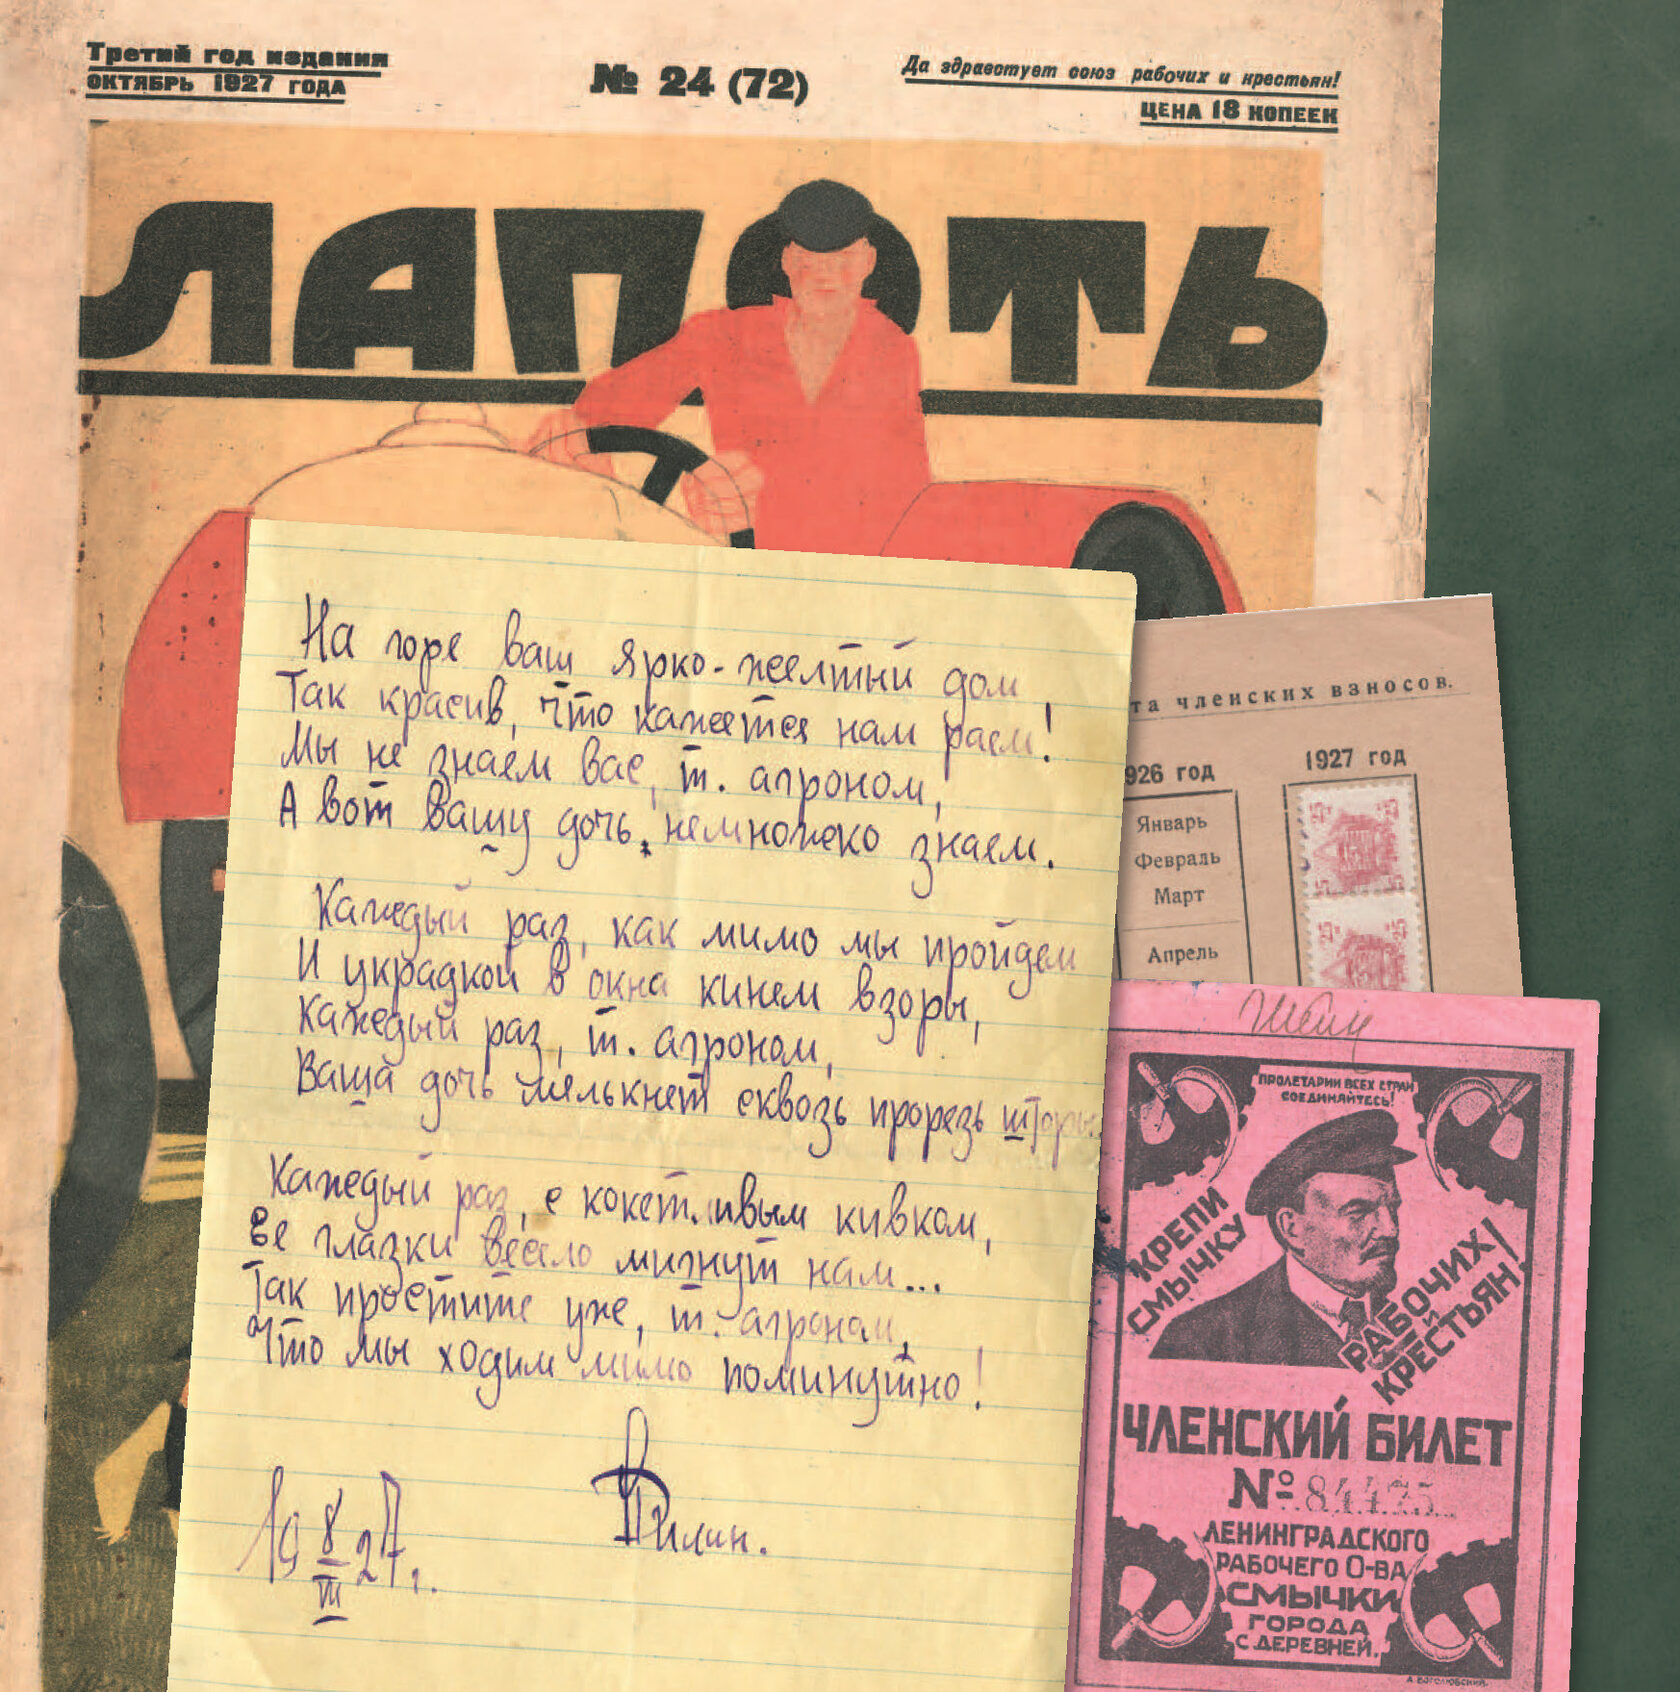 Третий год издания
ОКТЯБРЬ 1927 ГОДА
№ 24 (72)
Да здравствует союз рабочих и крестьян!
ЦЕНА 18 КОПЕЕК
ЛАПОТЬ
На горе ваш ярко-желтый дом
Так красив, что кажется нам раем!
Мы не знаем вас, т. агроном,
А вот вашу дочь немножко знаем.
Каждый раз, как мимо мы пройдем
И украдкой в окна кинем взоры,
Каждый раз, т. агроном,
Ваша дочь мелькнет сквозь прорезь шторы.
Каждый раз, с кокетливым кивком,
Ее глазки весело мигнут нам...
Так простите уже, т. агроном,
Что мы ходим мимо поминутно!
19 8/III 27 г.
Филин.
та членских взносов.
926 год
1927 год
Январь
Февраль
Март
Апрель
ПРОЛЕТАРИИ ВСЕХ СТРАН
СОЕДИНЯЙТЕСЬ!
КРЕПИ
СМЫЧКУ
РАБОЧИХ
И
КРЕСТЬЯН!
ЧЛЕНСКИЙ БИЛЕТ
№ 84475
ЛЕНИНГРАДСКОГО
РАБОЧЕГО О-ВА
СМЫЧКИ
ГОРОДА
С ДЕРЕВНЕЙ.
А. БОГОЛЮБСКИЙ.